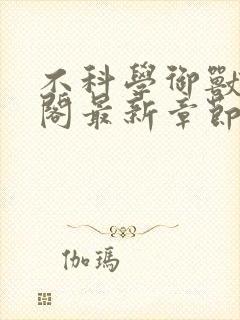 不科學御獸
閣最新章節
伽瑪